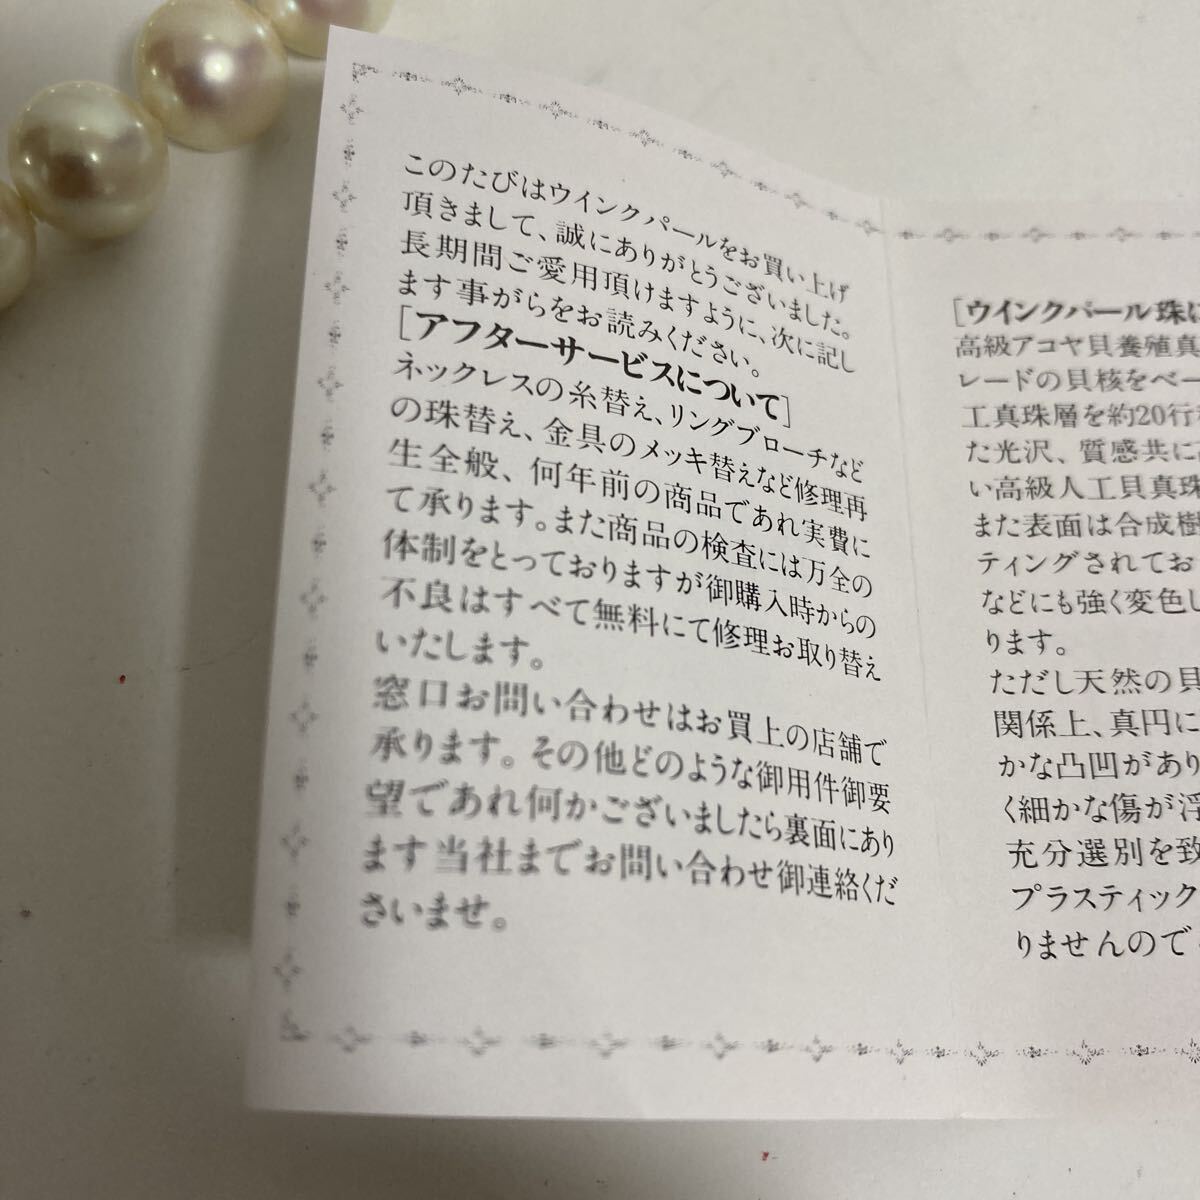 このたびはウインクパールをお買い上げ
頂きまして、誠にありがとうございました。
長期間ご愛用頂けますように、次に記し
ます事がらをお読みください。
[アフターサービスについて]
ネックレスの糸替え、リングブローチなど
の珠替え、金具のメッキ替えなど修理再
生全般、何年前の商品であれ実費に
て承ります。また商品の検査には万全の
体制をとっておりますが御購入時からの
不良はすべて無料にて修理お取り替え
いたします。
窓口お問い合わせはお買上の店舗で
承ります。その他どのような御用件御要
望であれ何かございましたら裏面にあり
ます当社までお問い合わせ御連絡くだ
さいませ。
[ウインクパール珠に
高級アコヤ貝養殖真
レードの貝核をベー
工真珠層を約20行
た光沢、質感共に
い高級人工貝真珠
また表面は合成樹
ティングされてお
などにも強く変色し
ります。
ただし天然の貝
関係上、真円に
かな凸凹があり
く細かな傷が浮
充分選別を致
プラスティック
りませんので